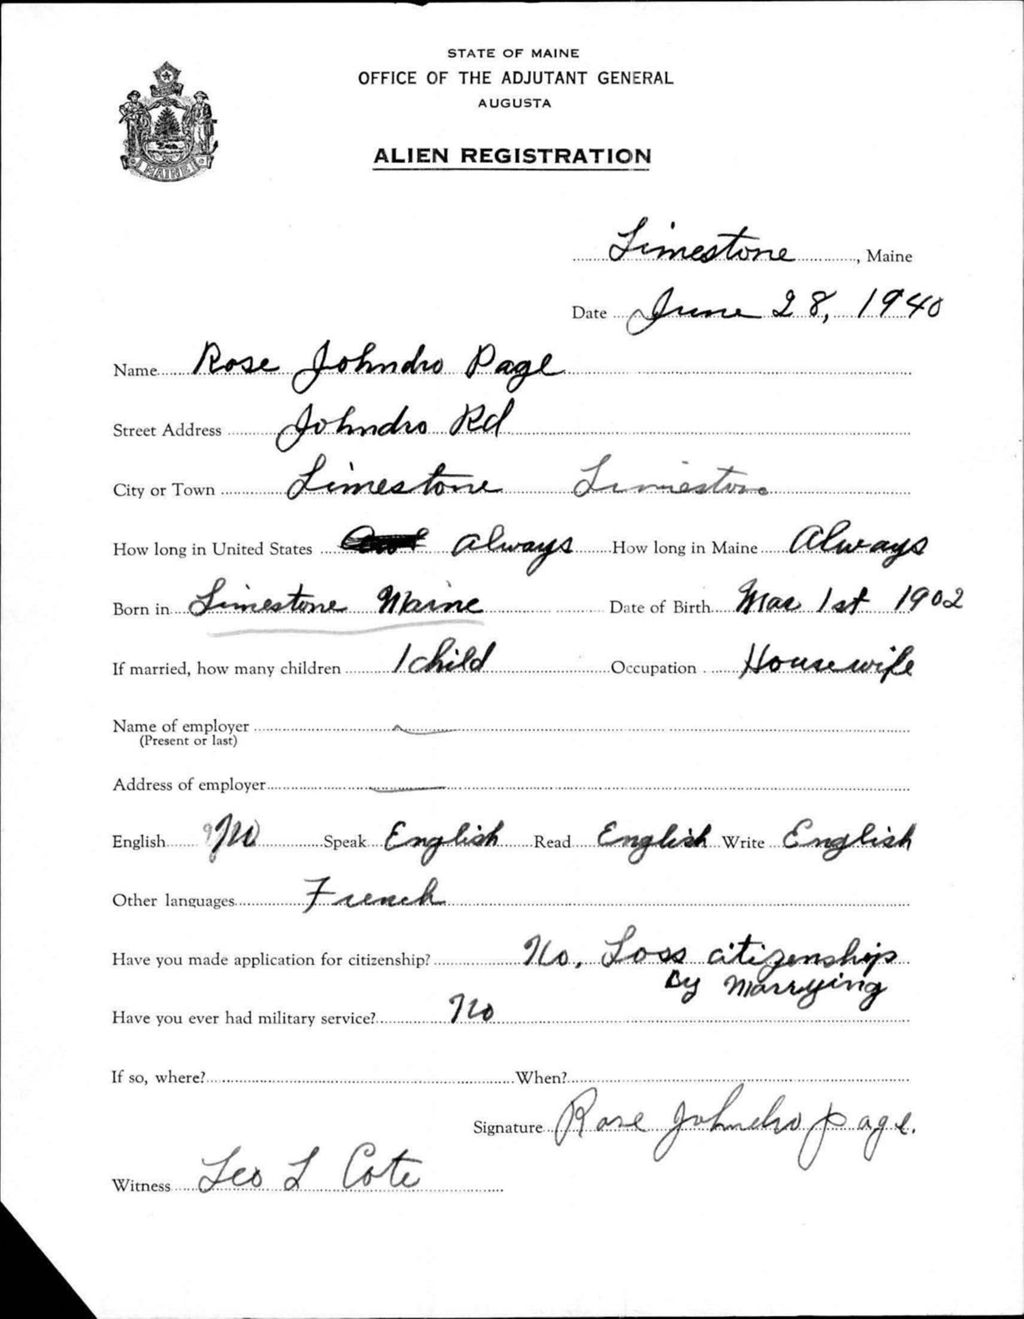 STATE OF MAINE
OFFICE OF THE ADJUTANT GENERAL
AUGUSTA
ALIEN REGISTRATION
MAINE
Limestone, Maine
Date June 28, 1940
Name Rose Johndro Page
Street Address Johndro Rd
City or Town Limestone Limestone
How long in United States always How long in Maine Always
Born in Limestone Maine Date of Birth Mar 1st 1902
If married, how many children 1 child Occupation Housewife
Name of employer
(Present or last)
Address of employer
English No Speak English Read English Write English
Other languages French
Have you made application for citizenship? No. Loss citizenship
by Marrying
Have you ever had military service? No
If so, where? When?
Signature Rose Johndro Page.
Witness Leo L Cote